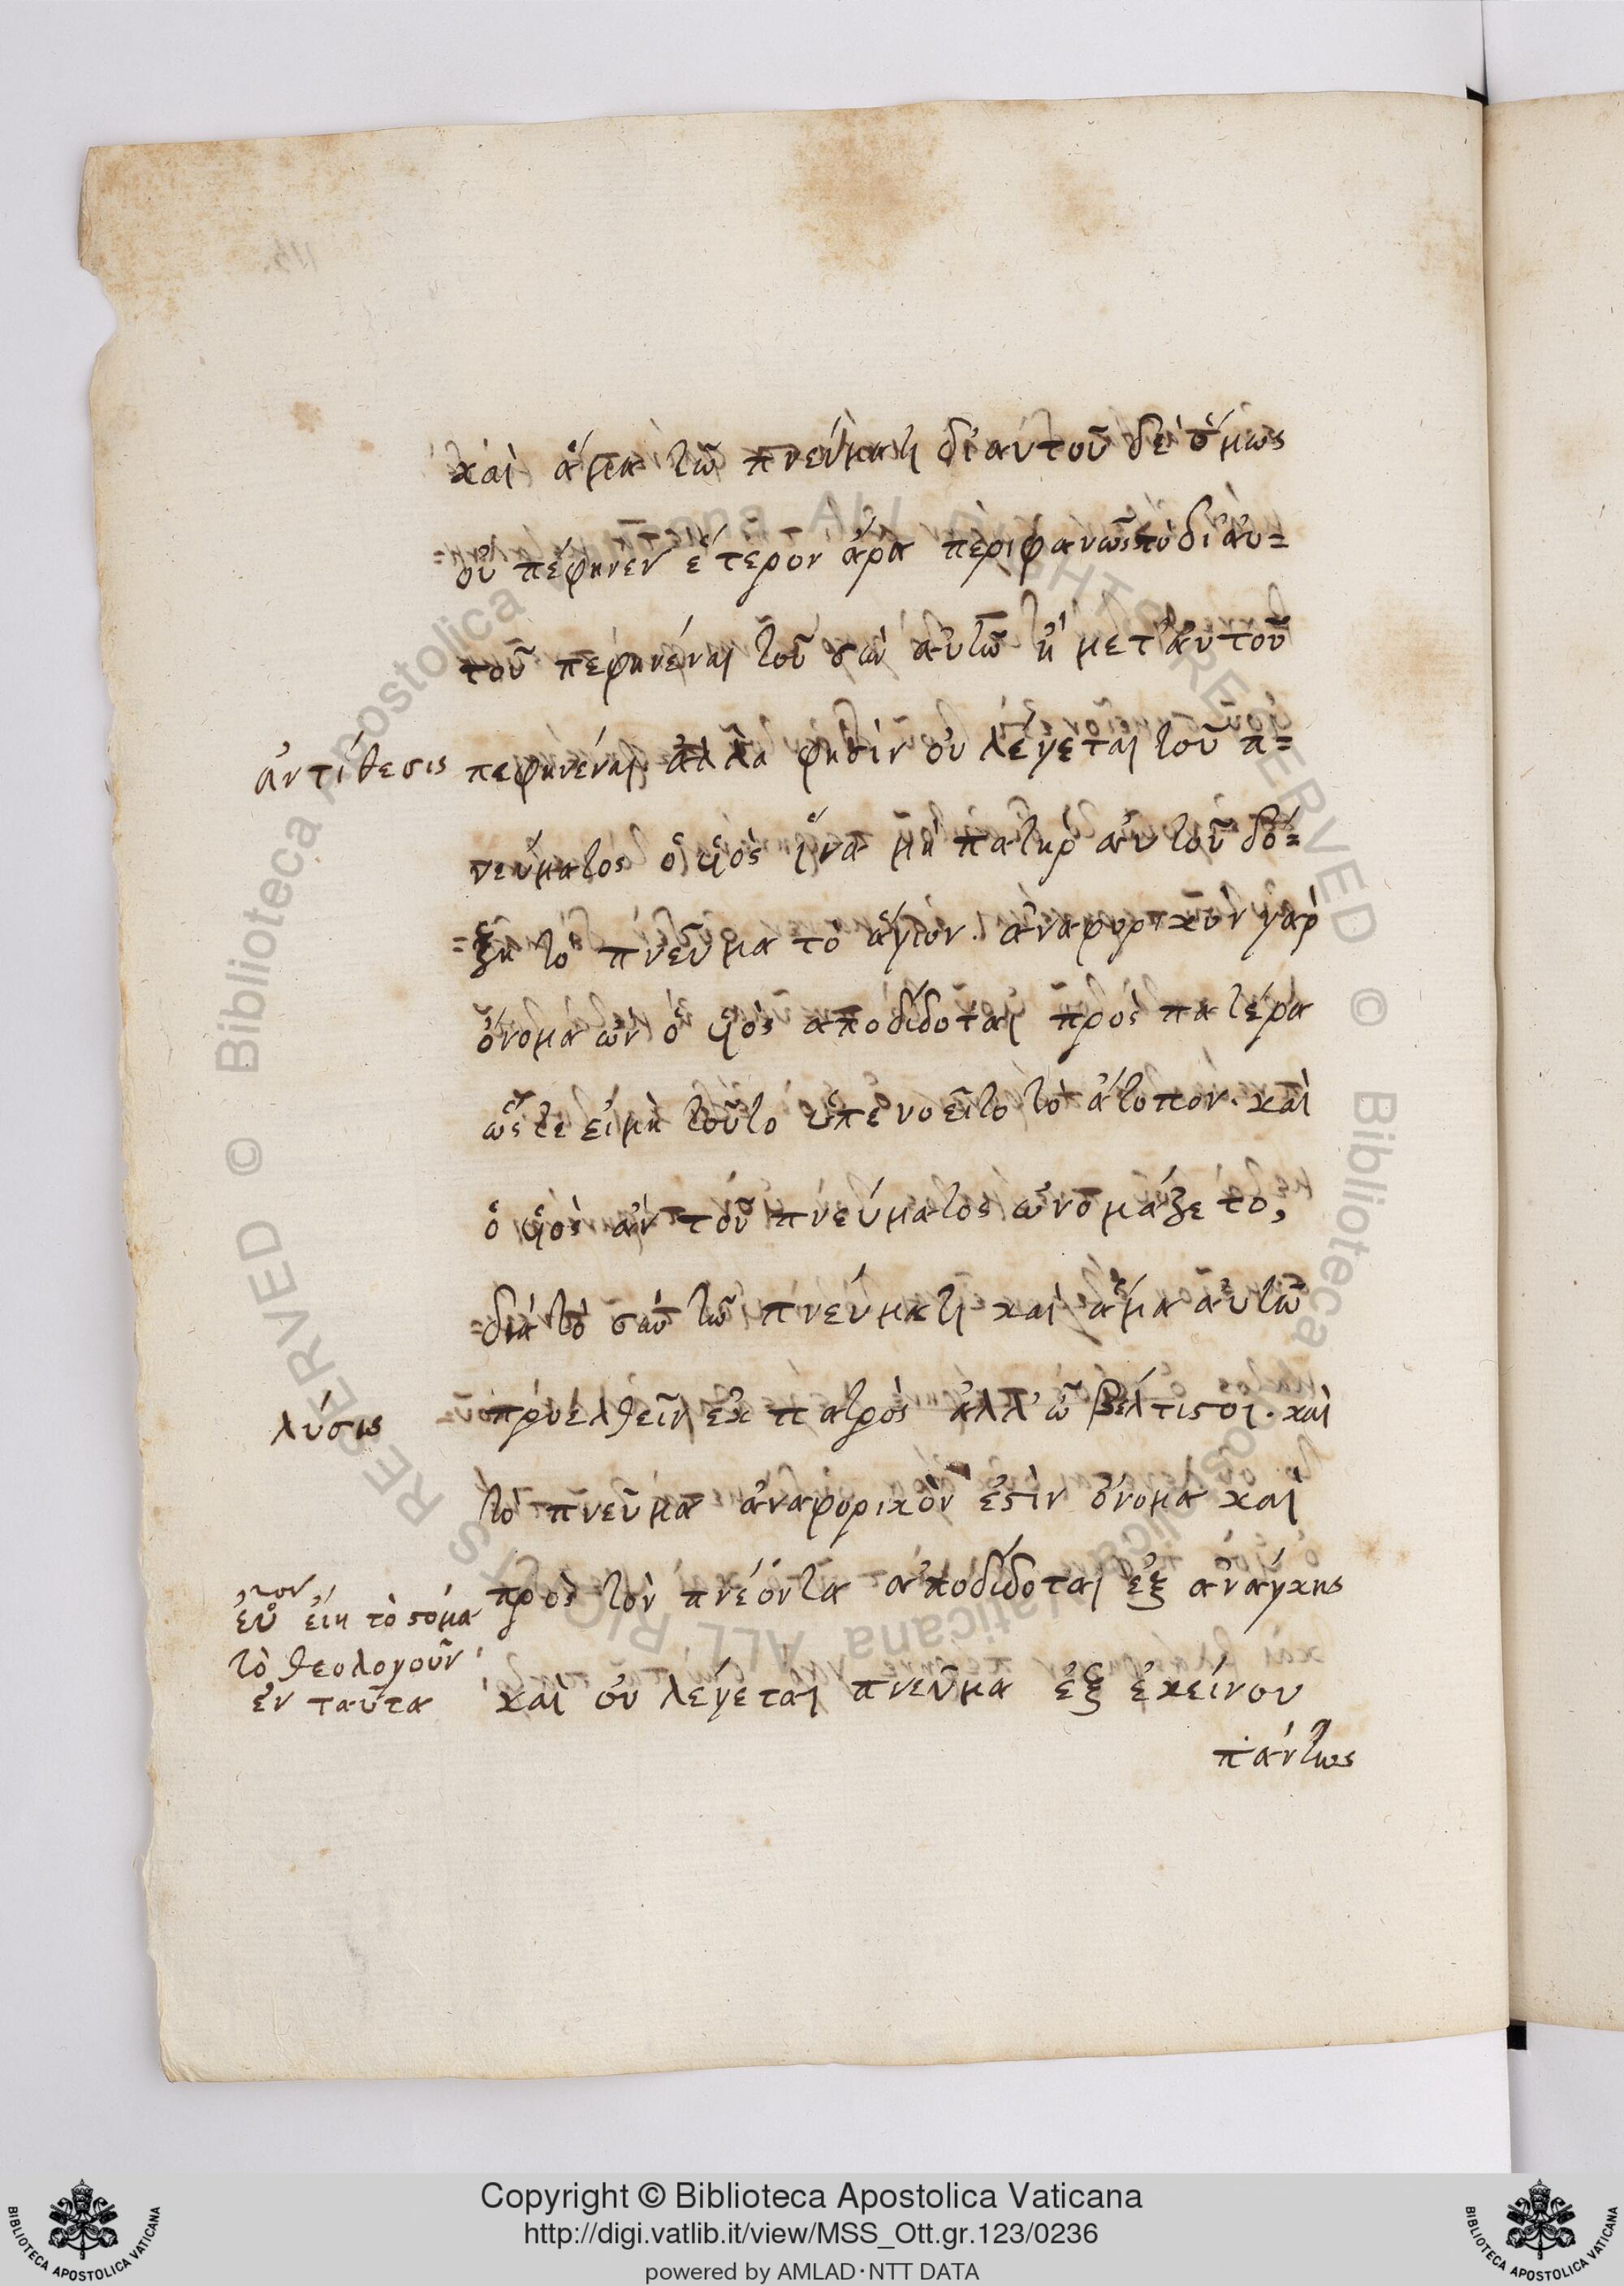 καὶ ἅμα τῶ πνεύματι δι' αὐτοῦ δὲ ὅμως
οὐ πέφηνεν ἕτερον ἄρα περιφανῶς τὸ δι' αὐ=
τοῦ πεφηνέναι τοῦ σὺν αὐτῶ ἢ μετ' αὐτοῦ
ἀντίθεσις πεφηνέναι. ἀλλὰ φησὶν οὐ λέγεται τοῦ π=
νεύματος ὁ υἱὸς ἵνα μὴ πατὴρ αὐτοῦ δό=
=ξη τὸ πνεῦμα τὸ ἅγιον. ἀναφορικὸν γὰρ
ὄνομα ὢν ὁ υἱὸς ἀποδίδοται πρὸς πατέρα
ὥστε εἰ μὴ τοῦτο ὑπενοεῖτο τὸ ἄτοπον. καὶ
ὁ υἱὸς ἂν τοῦ πνεύματος ὠνομάζετο,
=διὰ τὸ σὺν τῶ πνεύματι καὶ ἅμα αὐτῶ
λύσις προελθεῖν ἐκ πατρὸς ἀλλ' ὦ βέλτιστοι. καὶ
τὸ πνεῦμα ἀναφορικὸν ἐστὶν ὄνομα καὶ
πρὸς τὸν πνέοντα ἀποδίδοται ἐξ ἀνάγκης
εἴη τὸ στόμα
τὸ θεολογοῦν
ἐνταῦτα
καὶ οὐ λέγεται πνεῦμα ἐξ ἐκείνου
πάντως
© Biblioteca Apostolica Vaticana ALL RIGHTS RESERVED
© Biblioteca Apostolica Vaticana ALL RIGHTS RESERVED
Copyright © Biblioteca Apostolica Vaticana
http://digi.vatlib.it/view/MSS_Ott.gr.123/0236
powered by AMLAD·NTT DATA
BIBLIOTECA APOSTOLICA VATICANA
BIBLIOTECA APOSTOLICA VATICANA